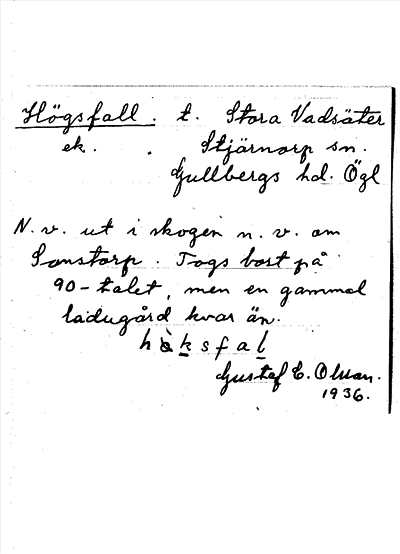 Högsfall. t. Stora Vadsäter
ek. Stjärnorp sn.
Gullbergs hd. Ögl
N.v. ut i skogen n.v. om
Sonstorp. Togs bort på
90-talet, men en gammal
ladugård kvar än.
h k s f a l
Gustaf E. Olsson.
1936.